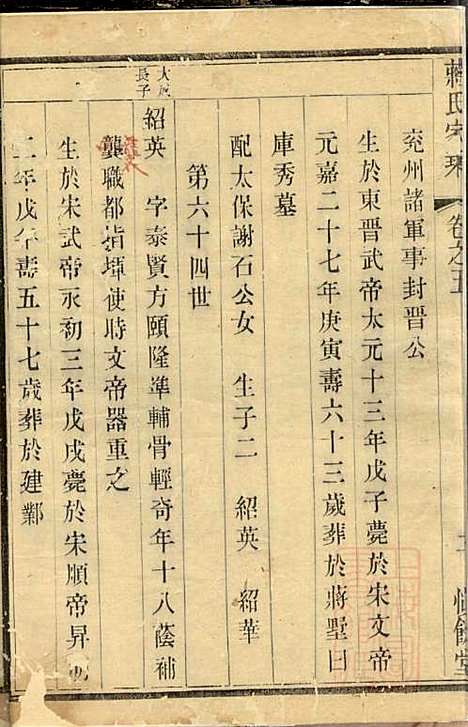 蔣氏宗
卷之五
兗州諸軍事封晉公
生於東晉武帝太元十三年戊子薨於宋文帝
元嘉二十七年庚寅壽六十三歲葬於蔣墅曰
庫秀墓
配太保謝石公女 生子二 紹英 紹華
第六十四世
大成
長子
紹英 字泰賢方頤隆準輔骨輕奇年十八蔭補
襲職都指揮使時文帝器重之
生於宋武帝永初三年戊戌薨於宋順帝昇
二年戊午壽五十七歲葬於建鄴